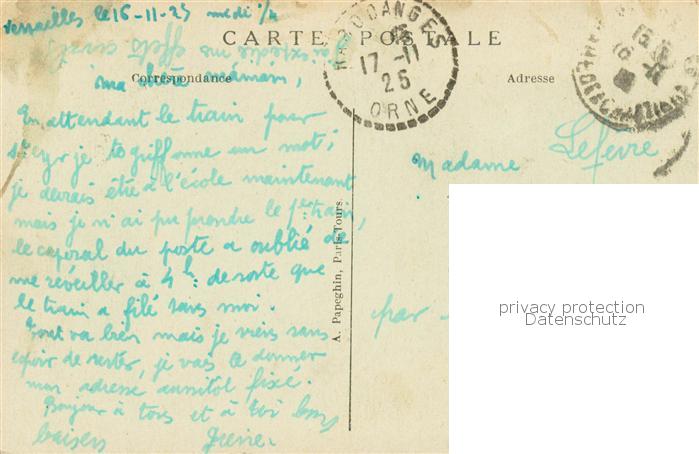 Versailles le 16-11-25 midi 1/4
CARTE POSTALE
J'ai expédié mes effets civils
Correspondance
ma chère maman,
En attendant le train pour
St Cyr je te griffonne un mot;
je devrais être à l'école maintenant
mais je n'ai pu prendre le 1er train,
le caporal du poste a oublié de
me réveiller à 4h: de sorte que
le train a filé sans moi.
Tout va bien mais je viens sans
espoir de rester, je vais te donner
mon adresse aussitôt fixé.
Bonjour à tous et à toi bons
baisers
A. Papeghin, Paris-Tours.
Adresse
Madame Lefèvre
par
17-11
25
ORNE
privacy protection
Datenschutz